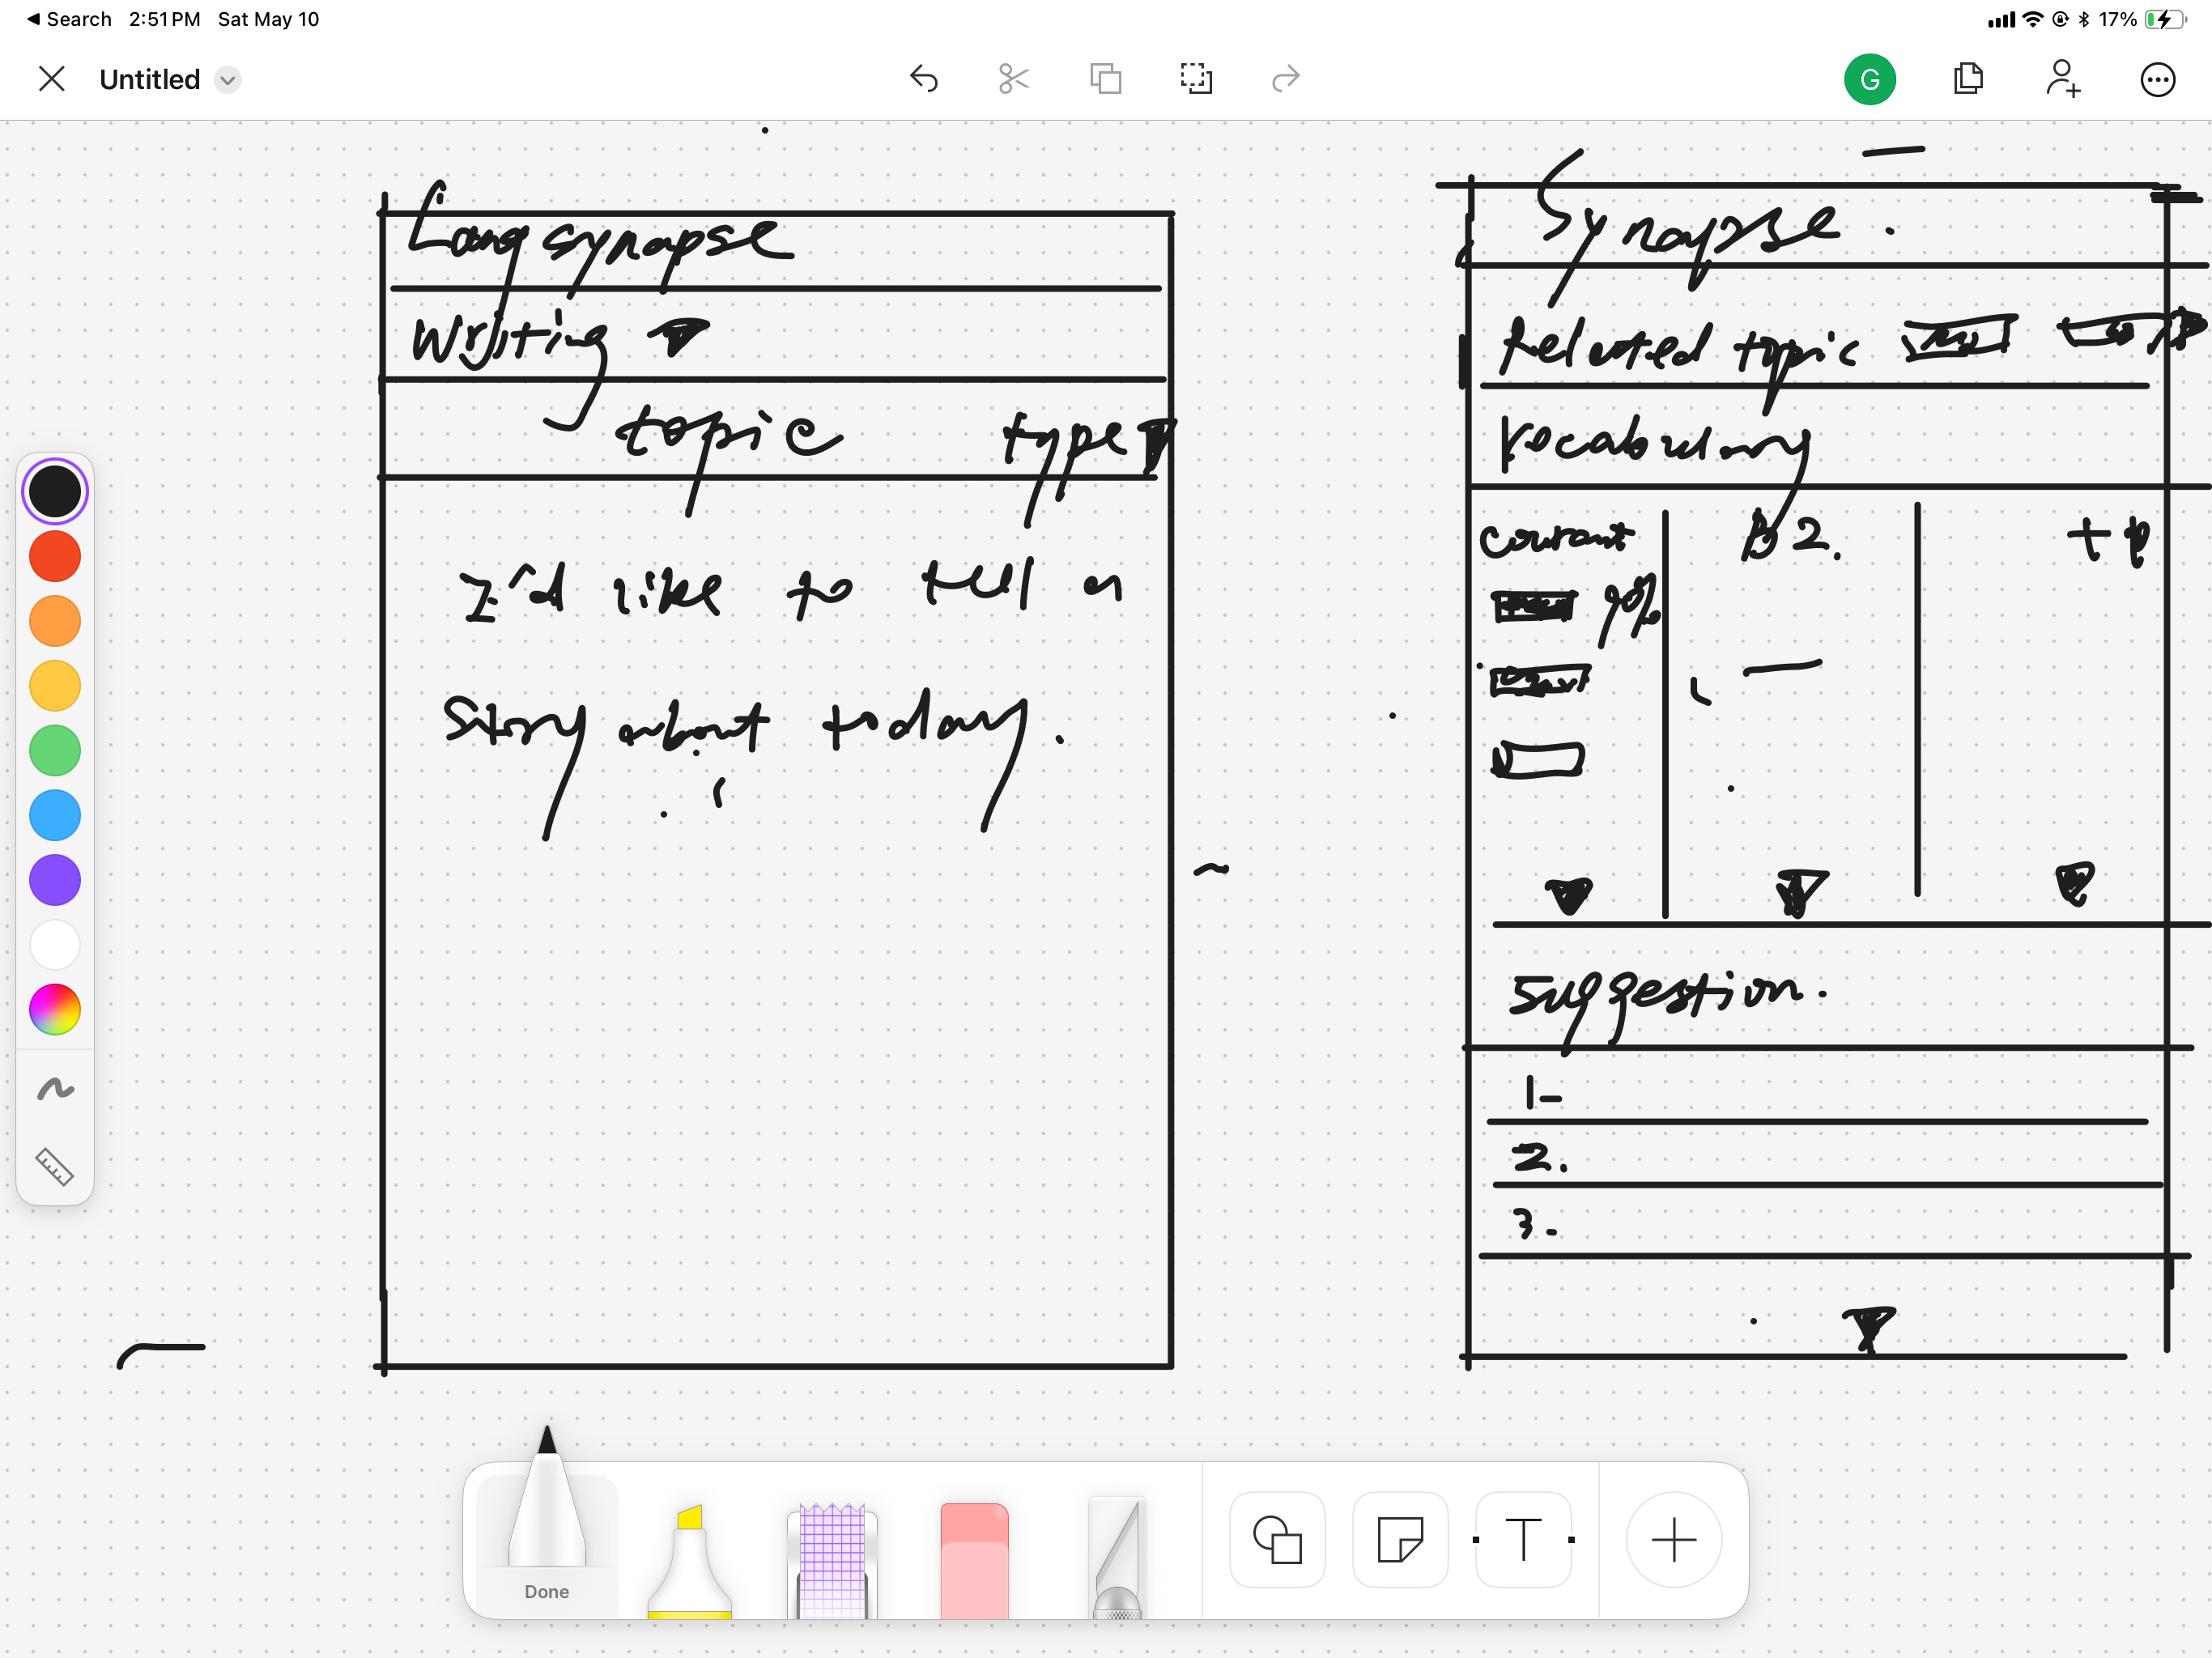 Search 2:51 PM Sat May 10
17%
Untitled
G
Langsynapse
Writing
topic type
I'd like to tell a
story about today.
Synapse.
Related topic
Vocabulary
B2.
Suggestion.
1-
2.
3-
Done
T